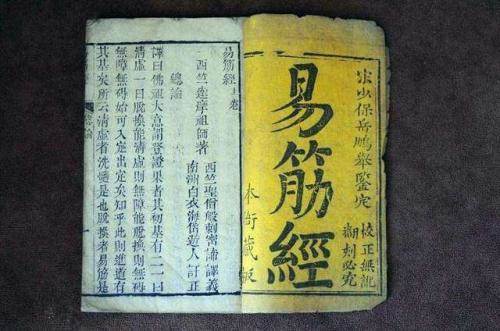 宋少保岳鵬舉鑒定
校正無訛
翻刻必究
易筋經
本衙藏板
易筋經上卷
西竺達摩祖師著
西竺聖僧般剌密諦譯義
南洲白衣海岱遊人訂正
總論
譯曰佛祖大意謂登證果者其初基有二一曰
清虛一曰脫換能清虛則無障能脫換則無礙
無障無碍始可入定出定矣知乎此則進道有
其基矣所云清虛者洗髓是也脫換者易筋是
總論